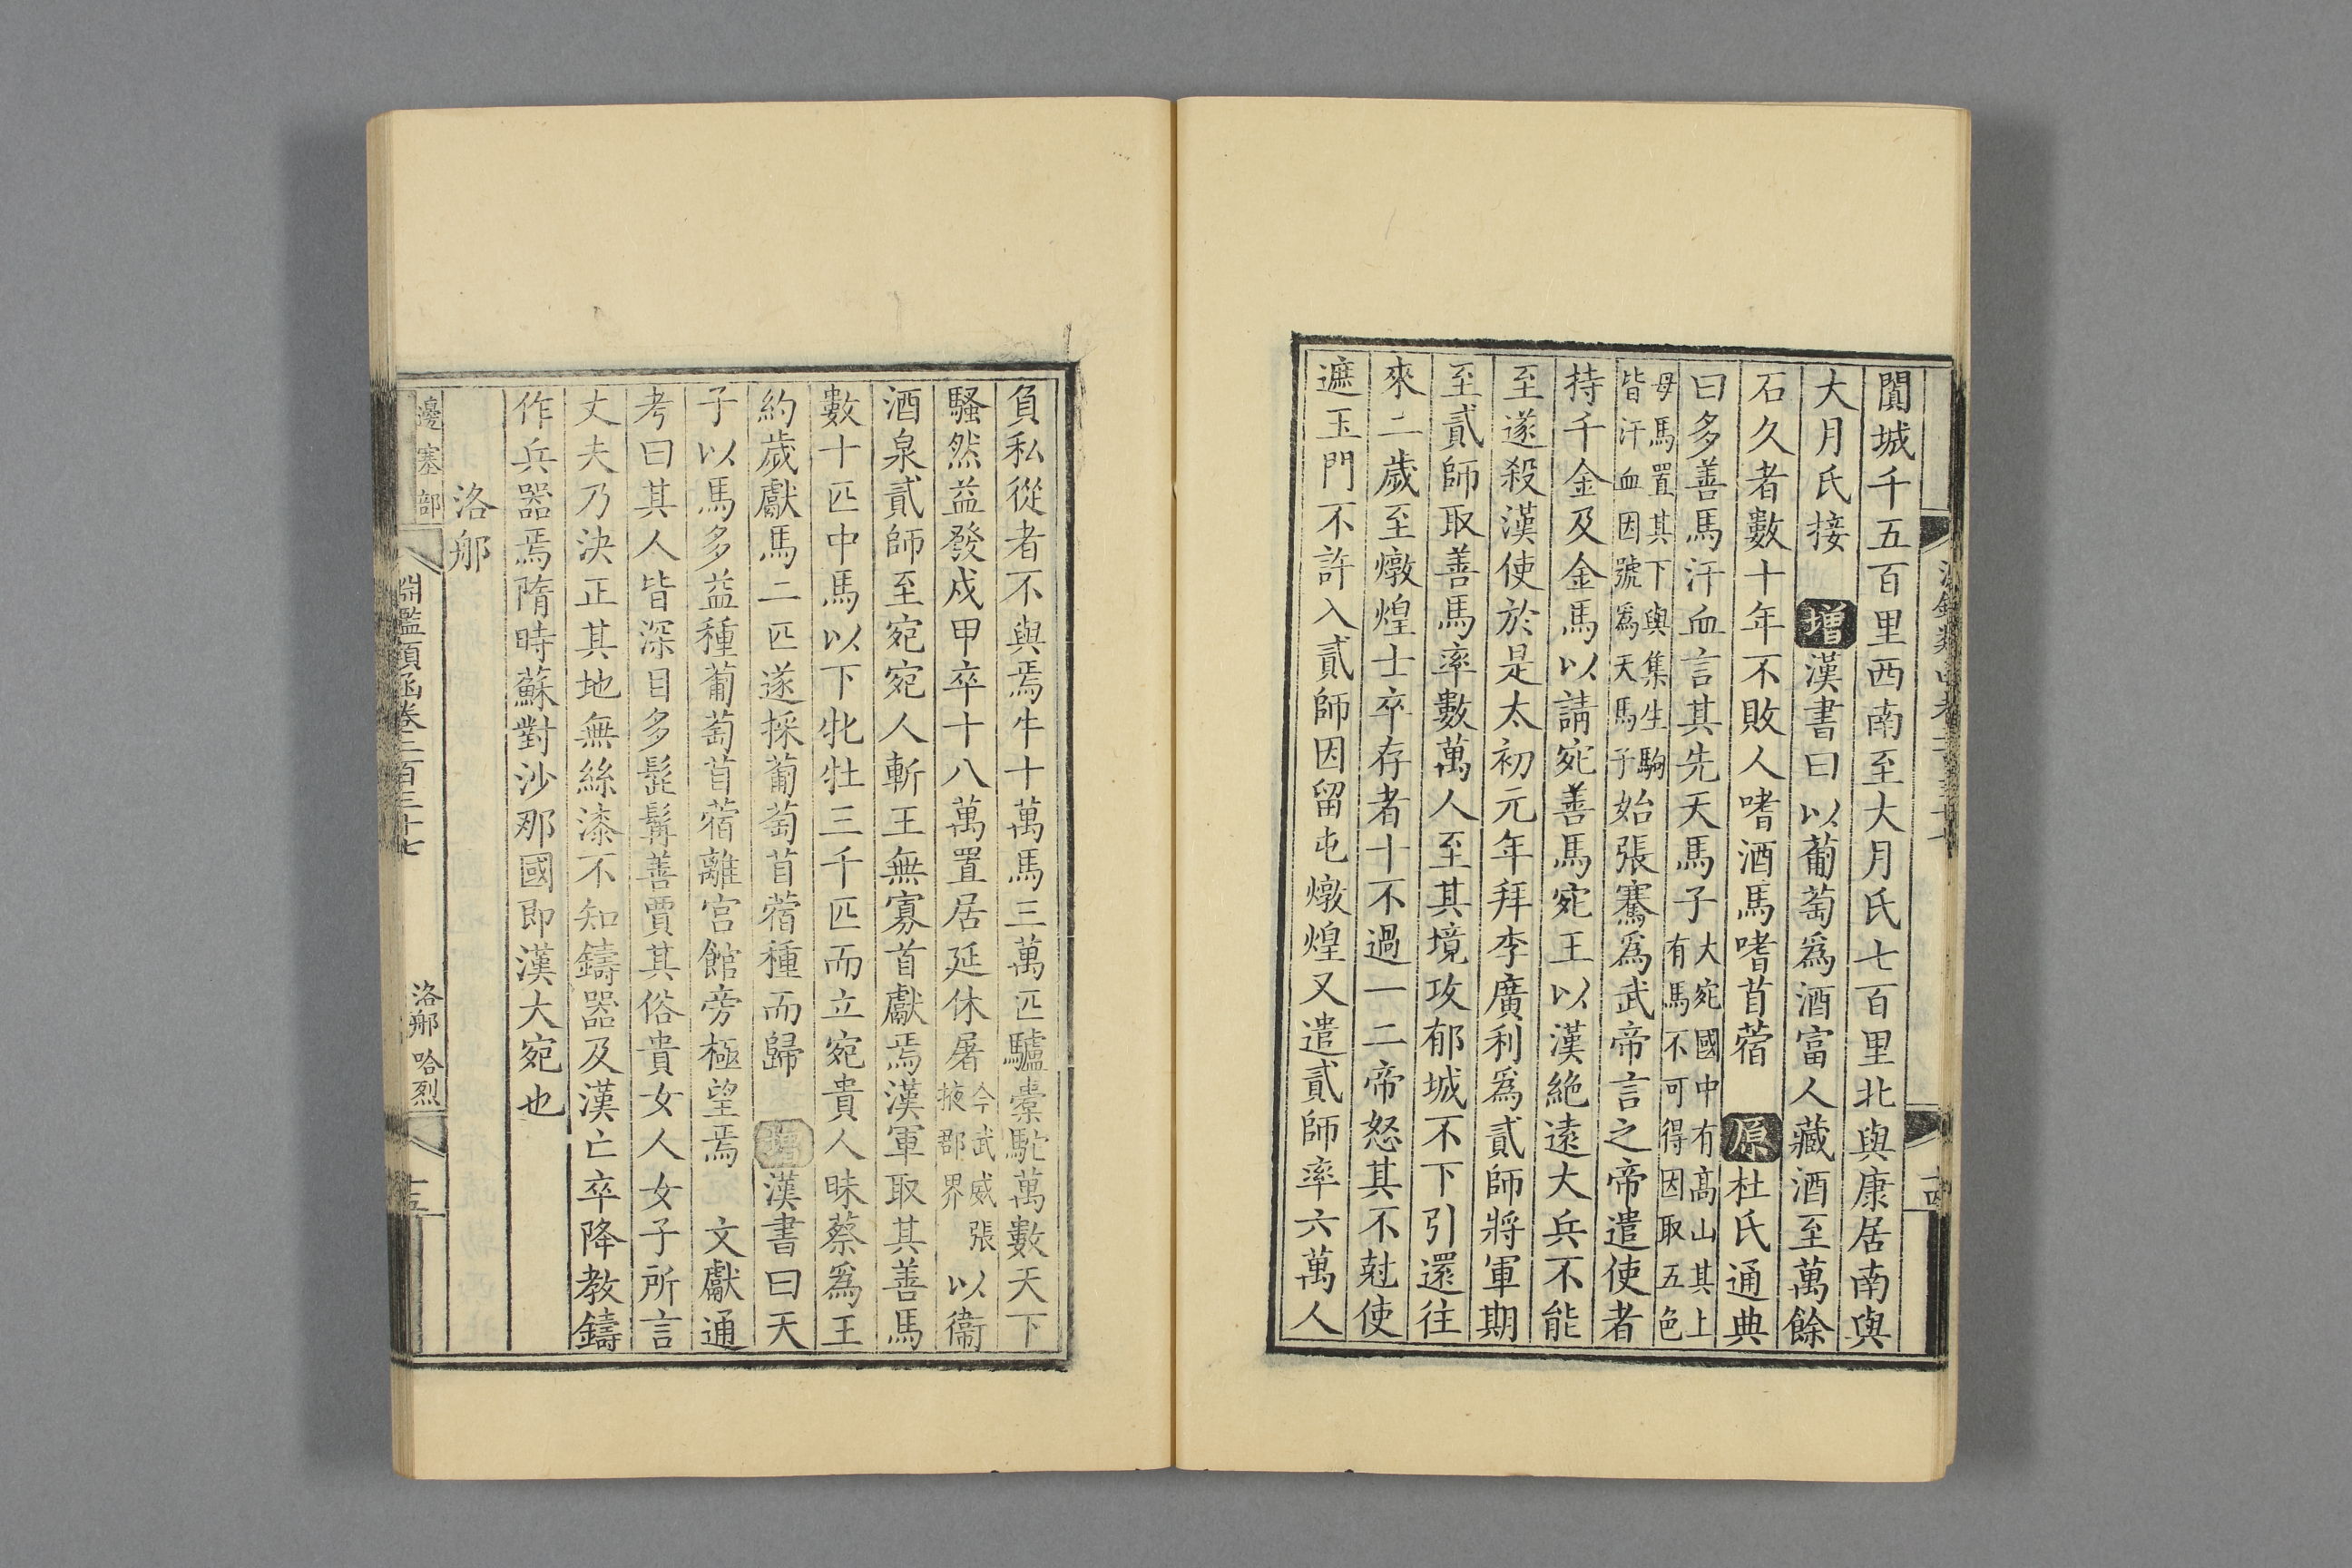 闐城千五百里西南至大月氏七百里北與康居南與
大月氏接 增漢書曰以葡萄爲酒富人藏酒至萬餘
石久者數十年不敗人嗜酒馬嗜苜蓿 原杜氏通典
曰多善馬汗血言其先天馬子大宛國中有高山其上有馬不可得因取五色
母馬置其下與集生駒皆汗血因號爲天馬子始張騫爲武帝言之帝遣使者
持千金及金馬以請宛善馬宛王以漢絶遠大兵不能
至遂殺漢使於是太初元年拜李廣利爲貳師將軍期
至貳師取善馬率數萬人至其境攻郁城不下引還往
來二歲至燉煌士卒存者十不過一二帝怒其不尅使
遮玉門不許入貳師因留屯燉煌又遣貳師率六萬人
十四
負私從者不與焉牛十萬馬三萬匹驢橐駝萬數天下
騷然益發戍甲卒十八萬置居延休屠今武威張掖郡界以衞
酒泉貳師至宛宛人斬王無寡首獻焉漢軍取其善馬
數十匹中馬以下牝牡三千匹而立宛貴人昧蔡爲王
約歲獻馬二匹遂採葡萄苜蓿種而歸 增漢書曰天
子以馬多益種葡萄苜蓿離宮館旁極望焉 文獻通
考曰其人皆深目多髭髯善賈其俗貴女人女子所言
丈夫乃決正其地無絲漆不知鑄器及漢亡卒降教鑄
作兵器焉隋時蘇對沙那國即漢大宛也
洛那
邊塞部 淵鑑類函卷二百三十七 洛那 哈烈 十五